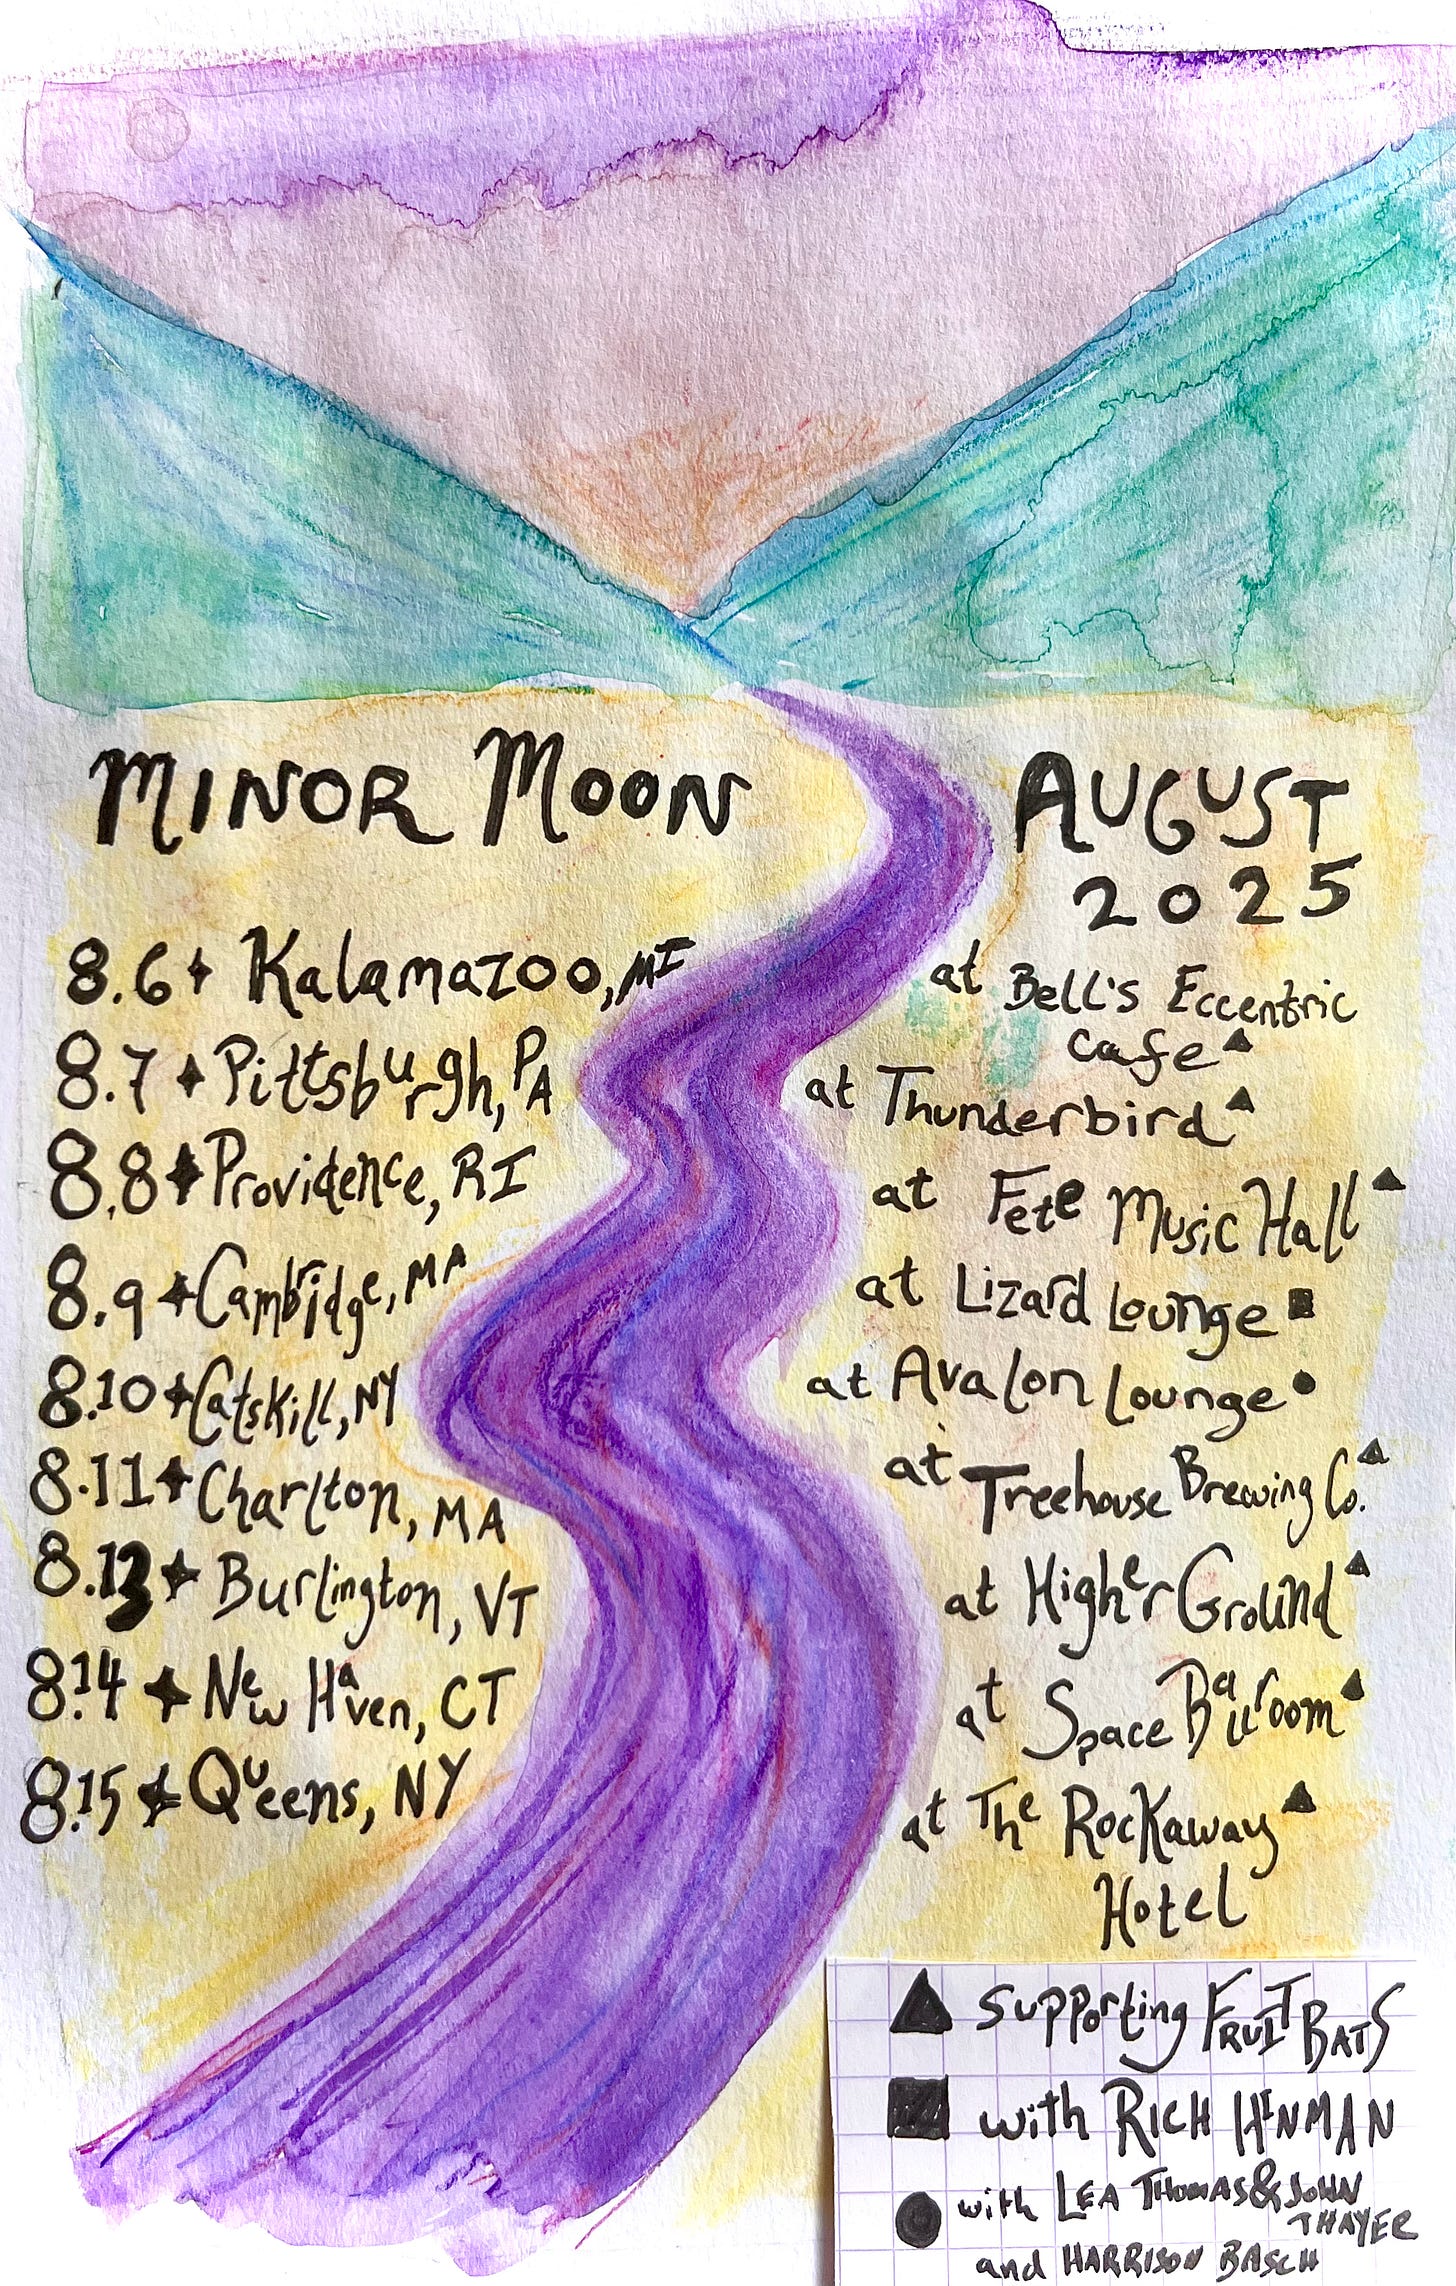 MINOR MOON
AUGUST
2025
8.6 Kalamazoo, MI at Bell's Eccentric
Cafe
8.7 Pittsburgh, PA at Thunderbird
8.8 Providence, RI at Fete Music Hall
8.9 Cambridge, MA at Lizard Lounge
8.10 Catskill, NY at Avalon Lounge
8.11 Charlton, MA at Treehouse Brewing Co.
8.13 Burlington, VT at Higher Ground
8.14 New Haven, CT at Space Ballroom
8.15 Queens, NY at The Rockaway
Hotel
supporting FRUIT BATS
with RICH HINMAN
with LEA THOMAS & JOHN
THAYER
and HARRISON BASCH